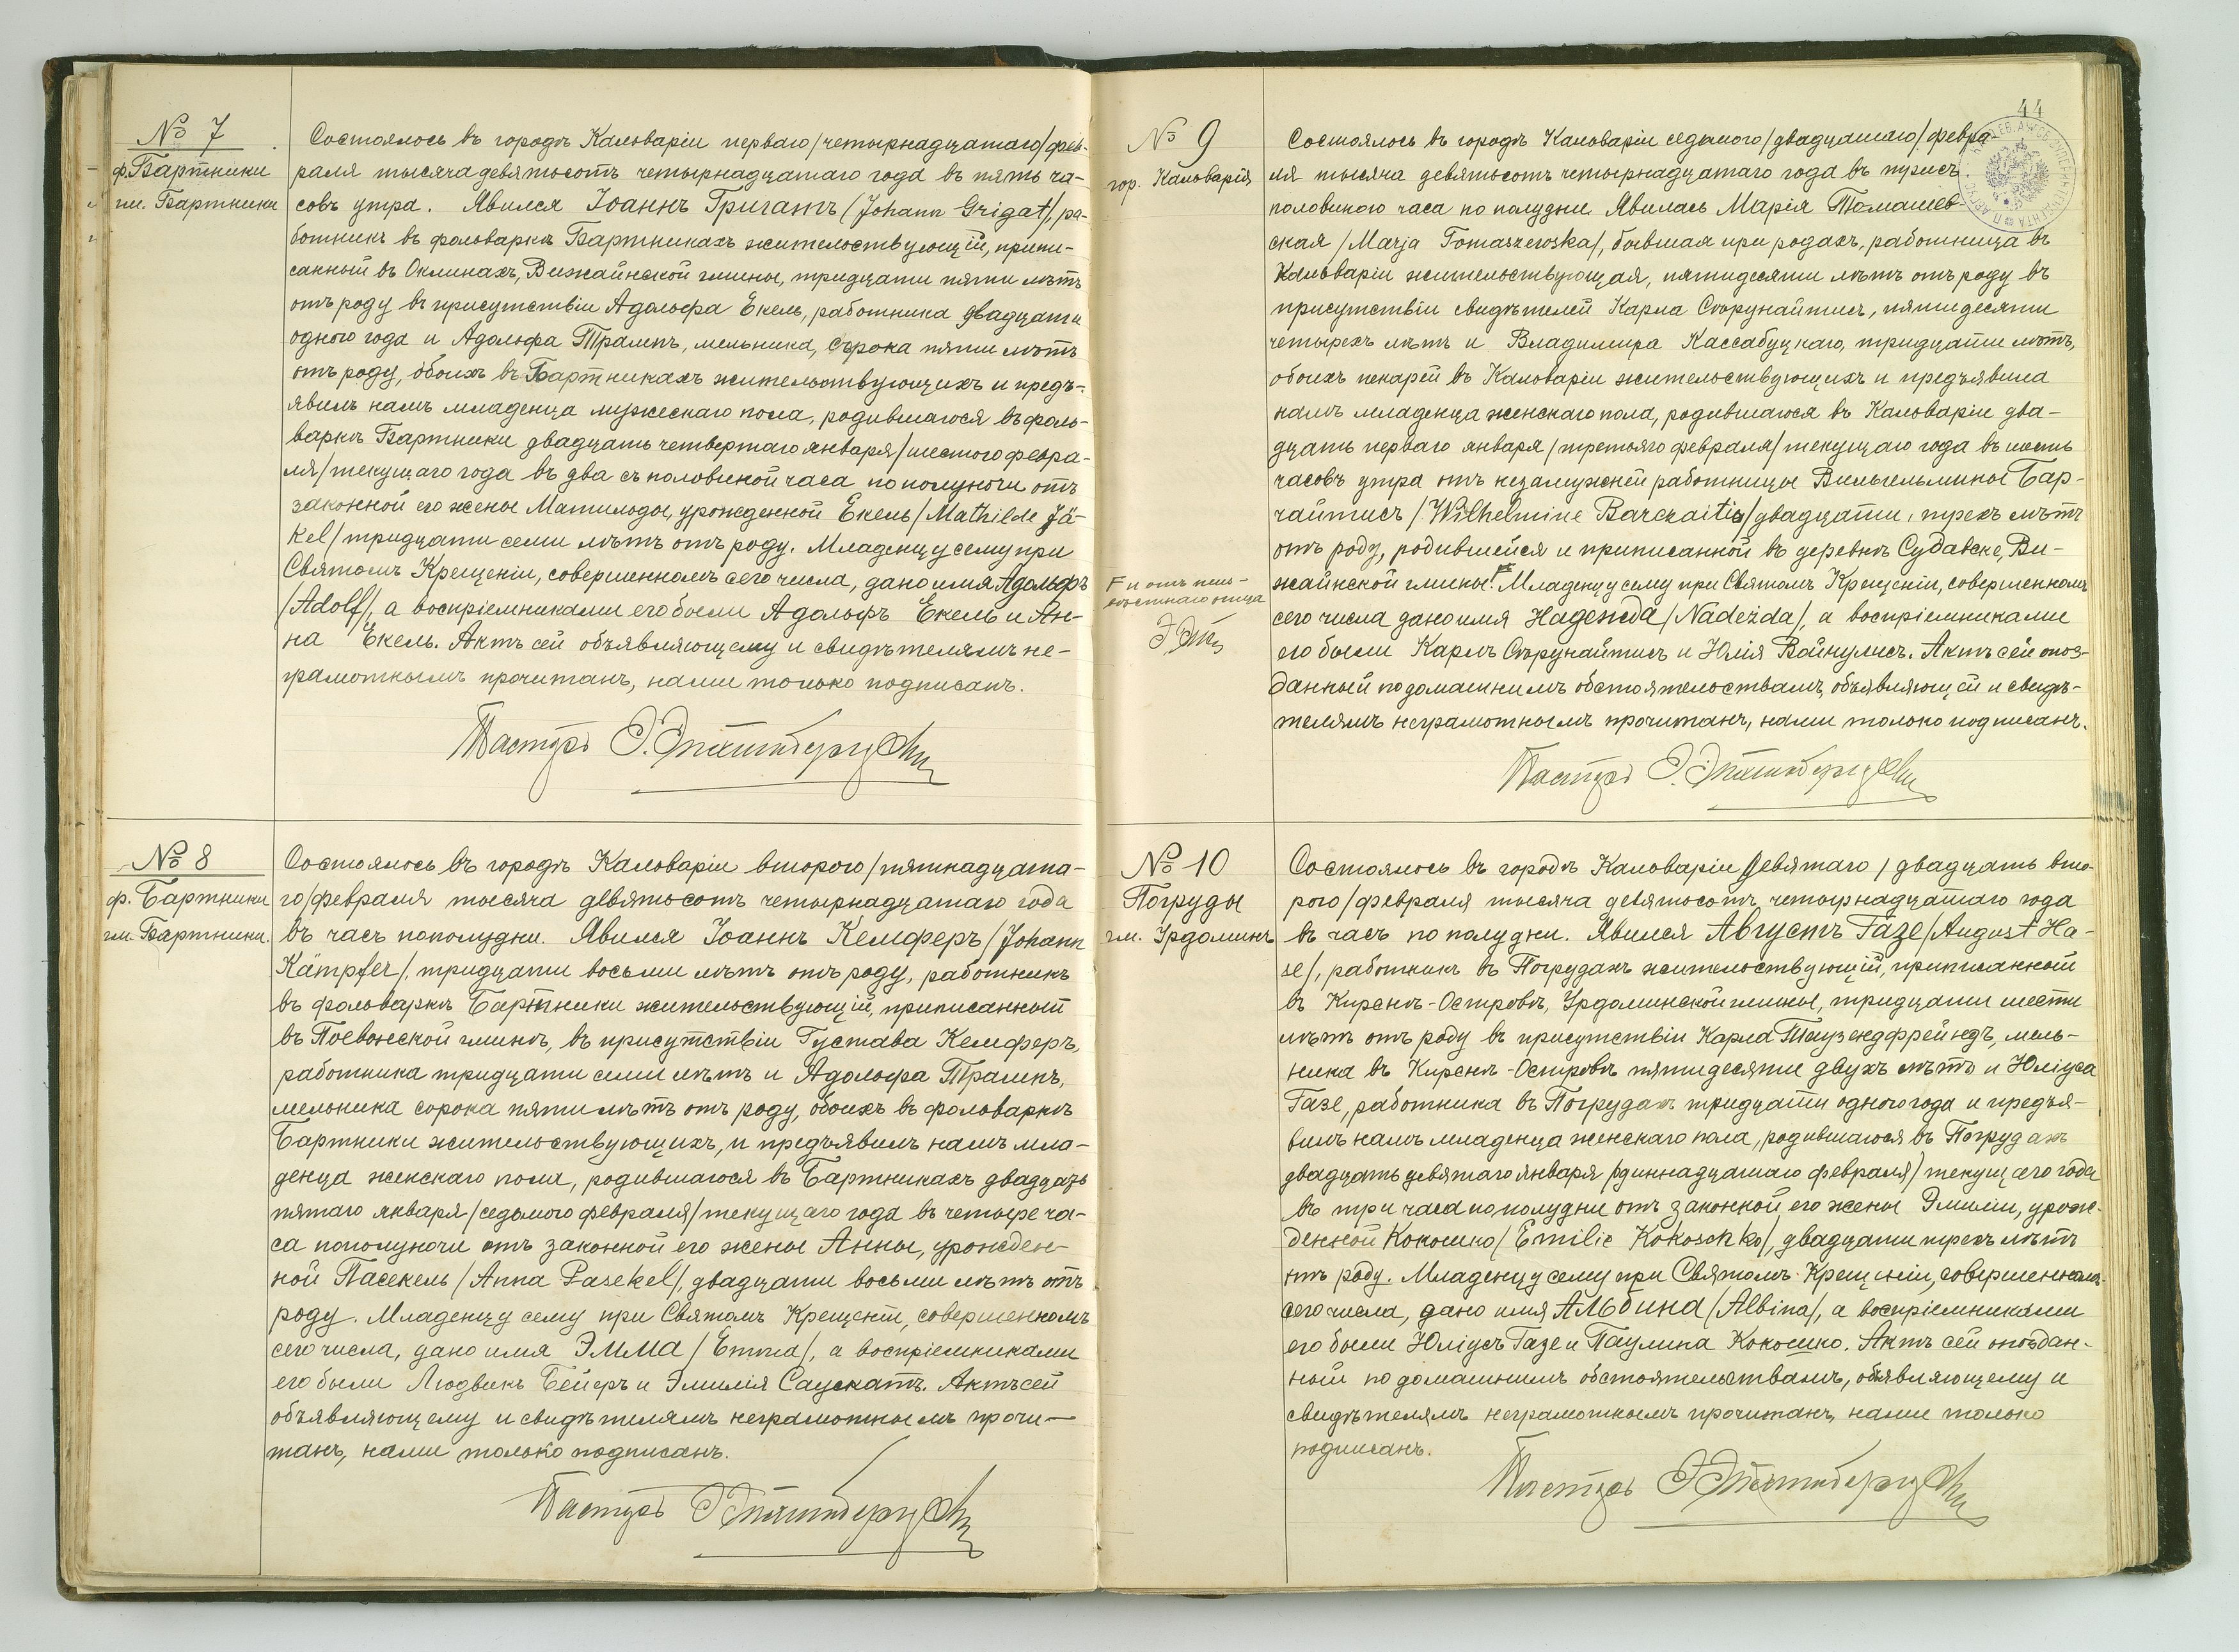 № 7
ф. Бартники
гм. Бартники
Состоялось въ городѣ Кальваріи перваго /четырнадцатаго/ фев-
раля тысяча девятьсотъ четырнадцатаго года въ пять ча-
совъ утра. Явился Іоаннъ Григатъ /Johann Grigat/, ра-
ботникъ въ фольваркѣ Бартникахъ жительствующій, припи-
санный въ Оклинахъ, Вижайнской гмины, тридцати пяти лѣтъ
отъ роду въ присутствіи Адольфа Екель, работника двадцати
одного года и Адольфа Трампъ, мельника, сорока пяти лѣтъ
отъ роду, обоихъ въ Бартникахъ жительствующихъ и предъ-
явилъ намъ младенца мужескаго пола, родившагося въ фоль-
варкѣ Бартники двадцать четвертаго января /шестого февра-
ля/ текущаго года въ два съ половиной часа по полуночи отъ
законной его жены Матильды, урожденной Екель /Mathilde Jä-
kel/ тридцати семи лѣтъ отъ роду. Младенцу сему при
Святомъ Крещеніи, совершенномъ сего числа, дано имя Адольфъ
/Adolf/, а воспріемниками его были Адольфъ Екель и Ан-
на Екель. Актъ сей объявляющему и свидѣтелямъ не-
грамотнымъ прочитанъ, нами только подписанъ.
Пасторъ
№ 8
ф. Бартники
гм. Бартники.
Состоялось въ городѣ Кальваріи второго /пятнадцата-
го/ февраля тысяча девятьсотъ четырнадцатаго года
въ часъ пополудни. Явился Іоаннъ Кемферъ /Johann
Kämpfer/, тридцати восьми лѣтъ отъ роду, работникъ
въ фольваркѣ Бартники жительствующій, приписанный
въ Поевонской гминѣ, въ присутствіи Густава Кемферъ,
работника тридцати семи лѣтъ и Адольфа Трампъ,
мельника сорока пяти лѣтъ отъ роду, обоихъ въ фольваркѣ
Бартники жительствующихъ, и предъявилъ намъ мла-
денца женскаго пола, родившагося въ Бартникахъ двадцать
пятаго января /седьмого февраля/ текущаго года въ четыре ча-
са пополуночи отъ законной его жены Анны, урожден-
ной Пасекель /Anna Pasekel/, двадцати восьми лѣтъ отъ
роду. Младенцу сему при Святомъ Крещеніи, совершенномъ
сего числа, дано имя Эмма /Emma/, а воспріемниками
его были Людвикъ Бейеръ и Эмилія Саускатъ. Актъ сей
объявляющему и свидѣтелямъ неграмотнымъ прочи-
танъ, нами только подписанъ.
Пасторъ
44
№ 9
гор. Кальварія
Состоялось въ городѣ Кальваріи седьмого /двадцатаго/ февра-
ля тысяча девятьсотъ четырнадцатаго года въ три съ
половиного часа по полудни. Явилась Марія Томашев-
ская /Marja Tomaszewska/, бывшая при родахъ, работница въ
Кальваріи жительствующая, пятидесяти лѣтъ отъ роду въ
присутствіи свидѣтелей Карла Струнайтисъ, пятидесяти
четырехъ лѣтъ и Владимира Кассабуцкаго, тридцати лѣтъ,
обоихъ пекарей въ Кальваріи жительствующихъ и предъявила
намъ младенца женскаго пола, родившагося въ Кальваріи два-
дцать перваго января /третьяго февраля/ текущаго года въ шесть
часовъ утра отъ незамужней работницы Вильгельмины Бар-
чайтисъ /Wilhelmine Barczaitis/ двадцати трехъ лѣтъ
отъ роду, родившейся и приписанной въ деревнѣ Судавске, Ви-
жайнской гмины. Младенцу сему при Святомъ Крещеніи, совершенномъ
сего числа дано имя Надежда /Nadežda/, а воспріемниками
его были Карлъ Струнайтисъ и Юлія Войнулисъ. Актъ сей опоз-
данный по домашнимъ обстоятельствамъ, объявляющей и свидѣ-
телямъ неграмотнымъ прочитанъ, нами только подписанъ.
и отъ неиз-
вѣстнаго отца
Пасторъ
№ 10
Погруды
гм. Урдоминъ
Состоялось въ городѣ Кальваріи девятаго /двадцать вто-
рого/ февраля тысяча девятьсотъ четырнадцатаго года
въ часъ по полудни. Явился Августъ Газе /August Ha-
se/, работникъ въ Погрудахъ жительствующій, приписанный
въ Кирснѣ-Островѣ, Урдоминской гмины, тридцати шести
лѣтъ отъ роду въ присутствіи Карла Таузендфрейндъ, мель-
ника въ Кирснѣ-Островѣ пятидесяти двухъ лѣтъ и Юліуса
Газе, работника въ Погрудахъ тридцати одного года и предъя-
вилъ намъ младенца женскаго пола, родившагося въ Погрудахъ
двадцать девятаго января /одиннадцатаго февраля/ текущаго года
въ три часа по полудни отъ законной его жены Эмиліи, урож-
денной Кокошко /Emilie Kokoschko/, двадцати трехъ лѣтъ
отъ роду. Младенцу сему при Святомъ Крещеніи, совершенномъ
сего числа, дано имя Альбина /Albina/, а воспріемниками
его были Юліусъ Газе и Паулина Кокошко. Актъ сей опоздан-
ный по домашнимъ обстоятельствамъ, объявляющему и
свидѣтелямъ неграмотнымъ прочитанъ, нами только
подписанъ.
Пасторъ